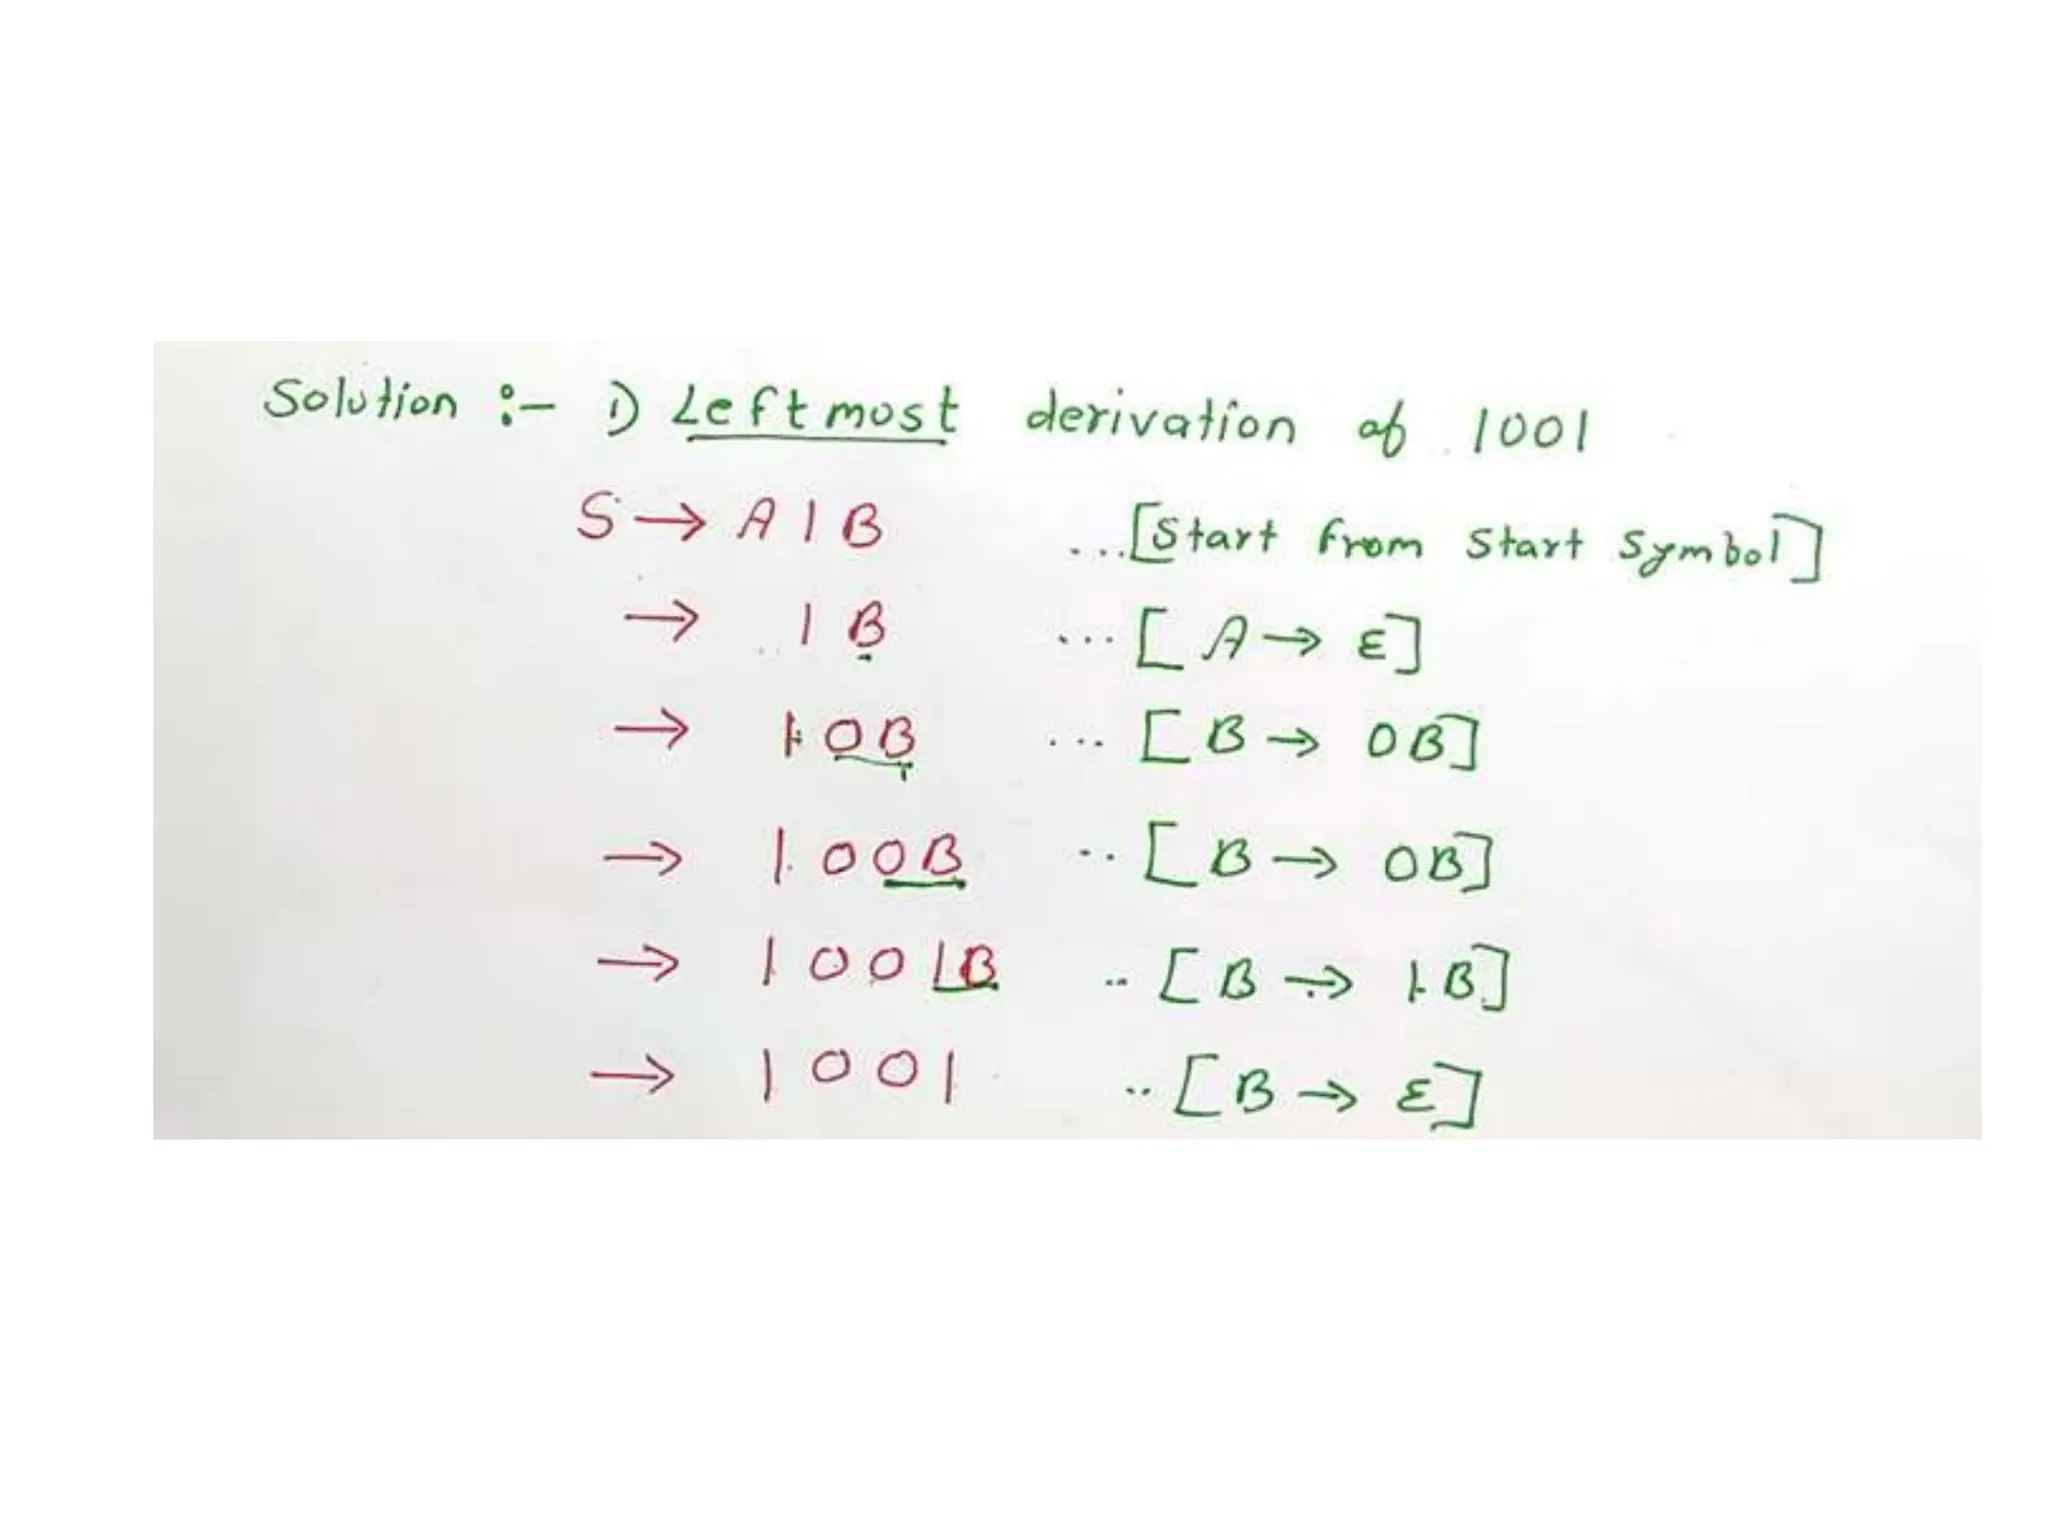 Solution :- 1) Leftmost derivation of 1001
S → A 1 B ...[Start from Start Symbol]
→ 1 B ...[ A → ε]
→ 1 0 B ...[ B → 0 B]
→ 1 0 0 B ..[ B → 0 B]
→ 1 0 0 1 B ..[ B → 1 B]
→ 1 0 0 1 ..[ B → ε]